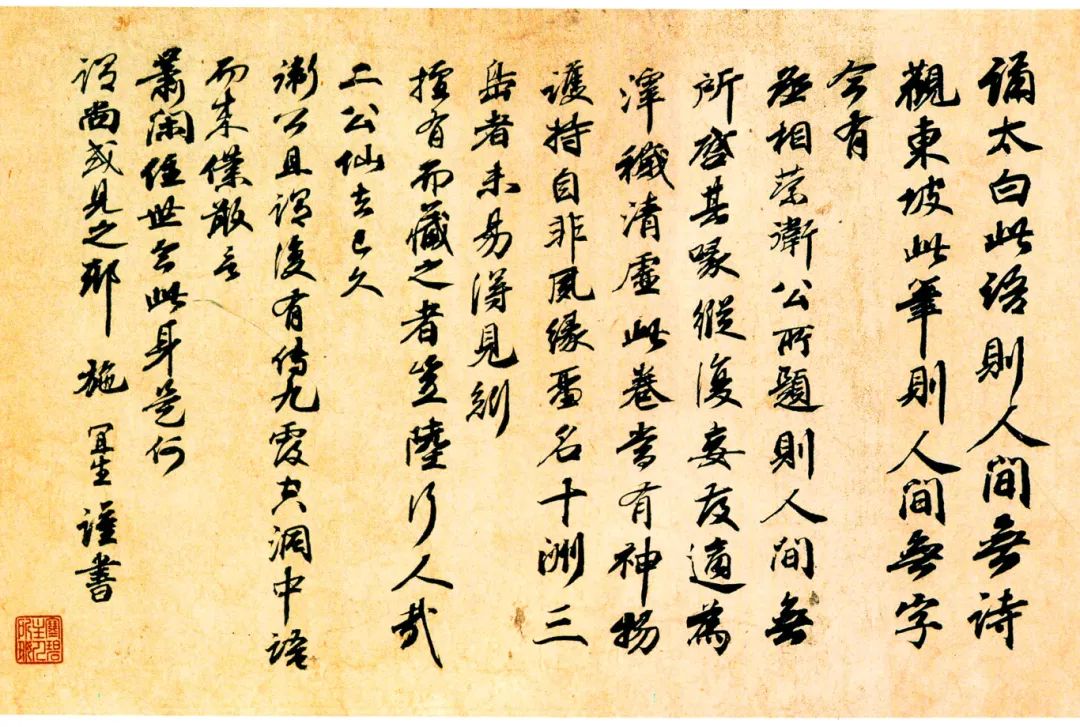 誦太白此語則人間無詩
觀東坡此筆則人間無字
今有
丞相蔡衛公所題則人間無
所啓其喙縱復妄發適為
滓穢清虛此卷當有神物
護持自非夙緣名十洲三
岳者未易得見矧
擅有而藏之者豈陸行人哉
二公仙去已久
衛公且謂後有傳九霞空洞中語
而來僕敢言
蕭閑住世此身是何
謂尚或見之邪 施宜生謹書